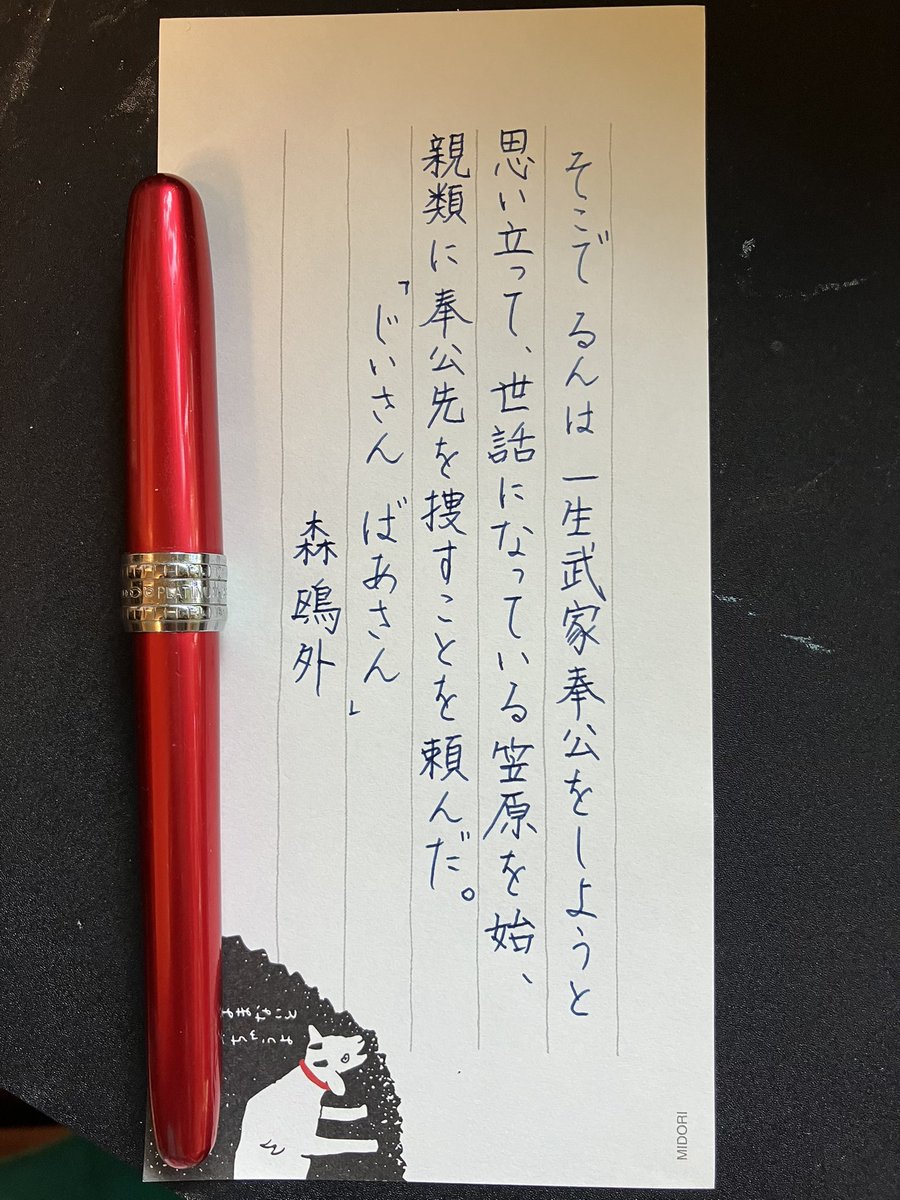 そこでるんは一生武家奉公をしようと
思い立って、世話になっている笠原を始、
親類に奉公先を捜すことを頼んだ。
「じいさん ばあさん」
森鴎外
PLATINUM
MIDORI